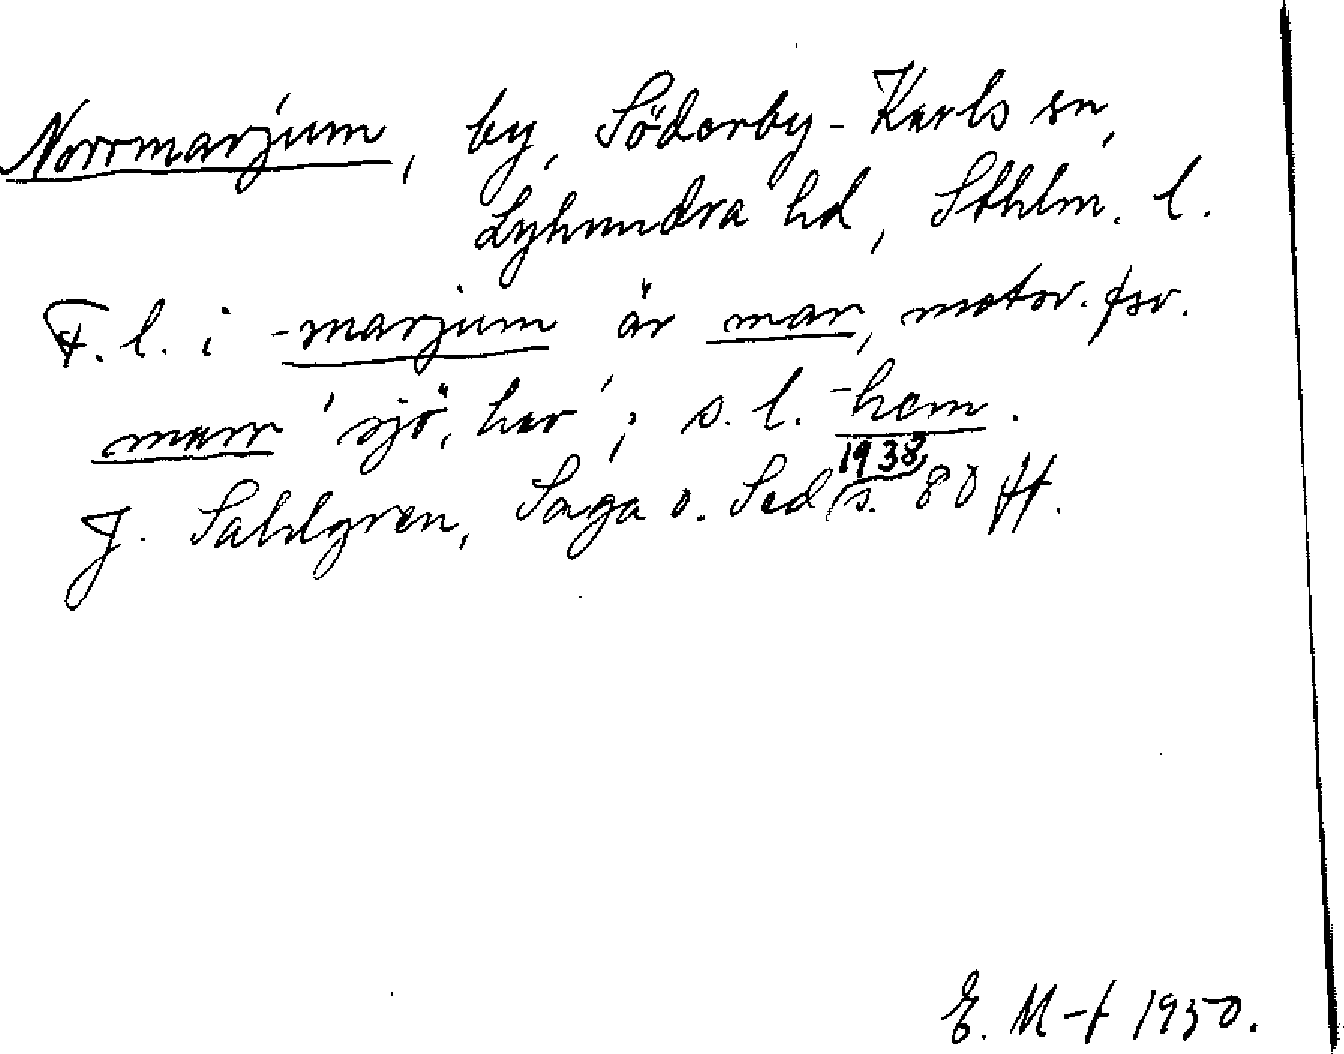 Norrmarjum, by, Söderby-Karls sn,
Lyhundra hd, Sthlm. l.
F. l. i -marjum är mar, motsv. fsv.
marr 'sjö, hav'; s. l. -hem.
J. Sahlgren, Saga o. Sed 1938 s. 80 ff.
E. M-t 1950.